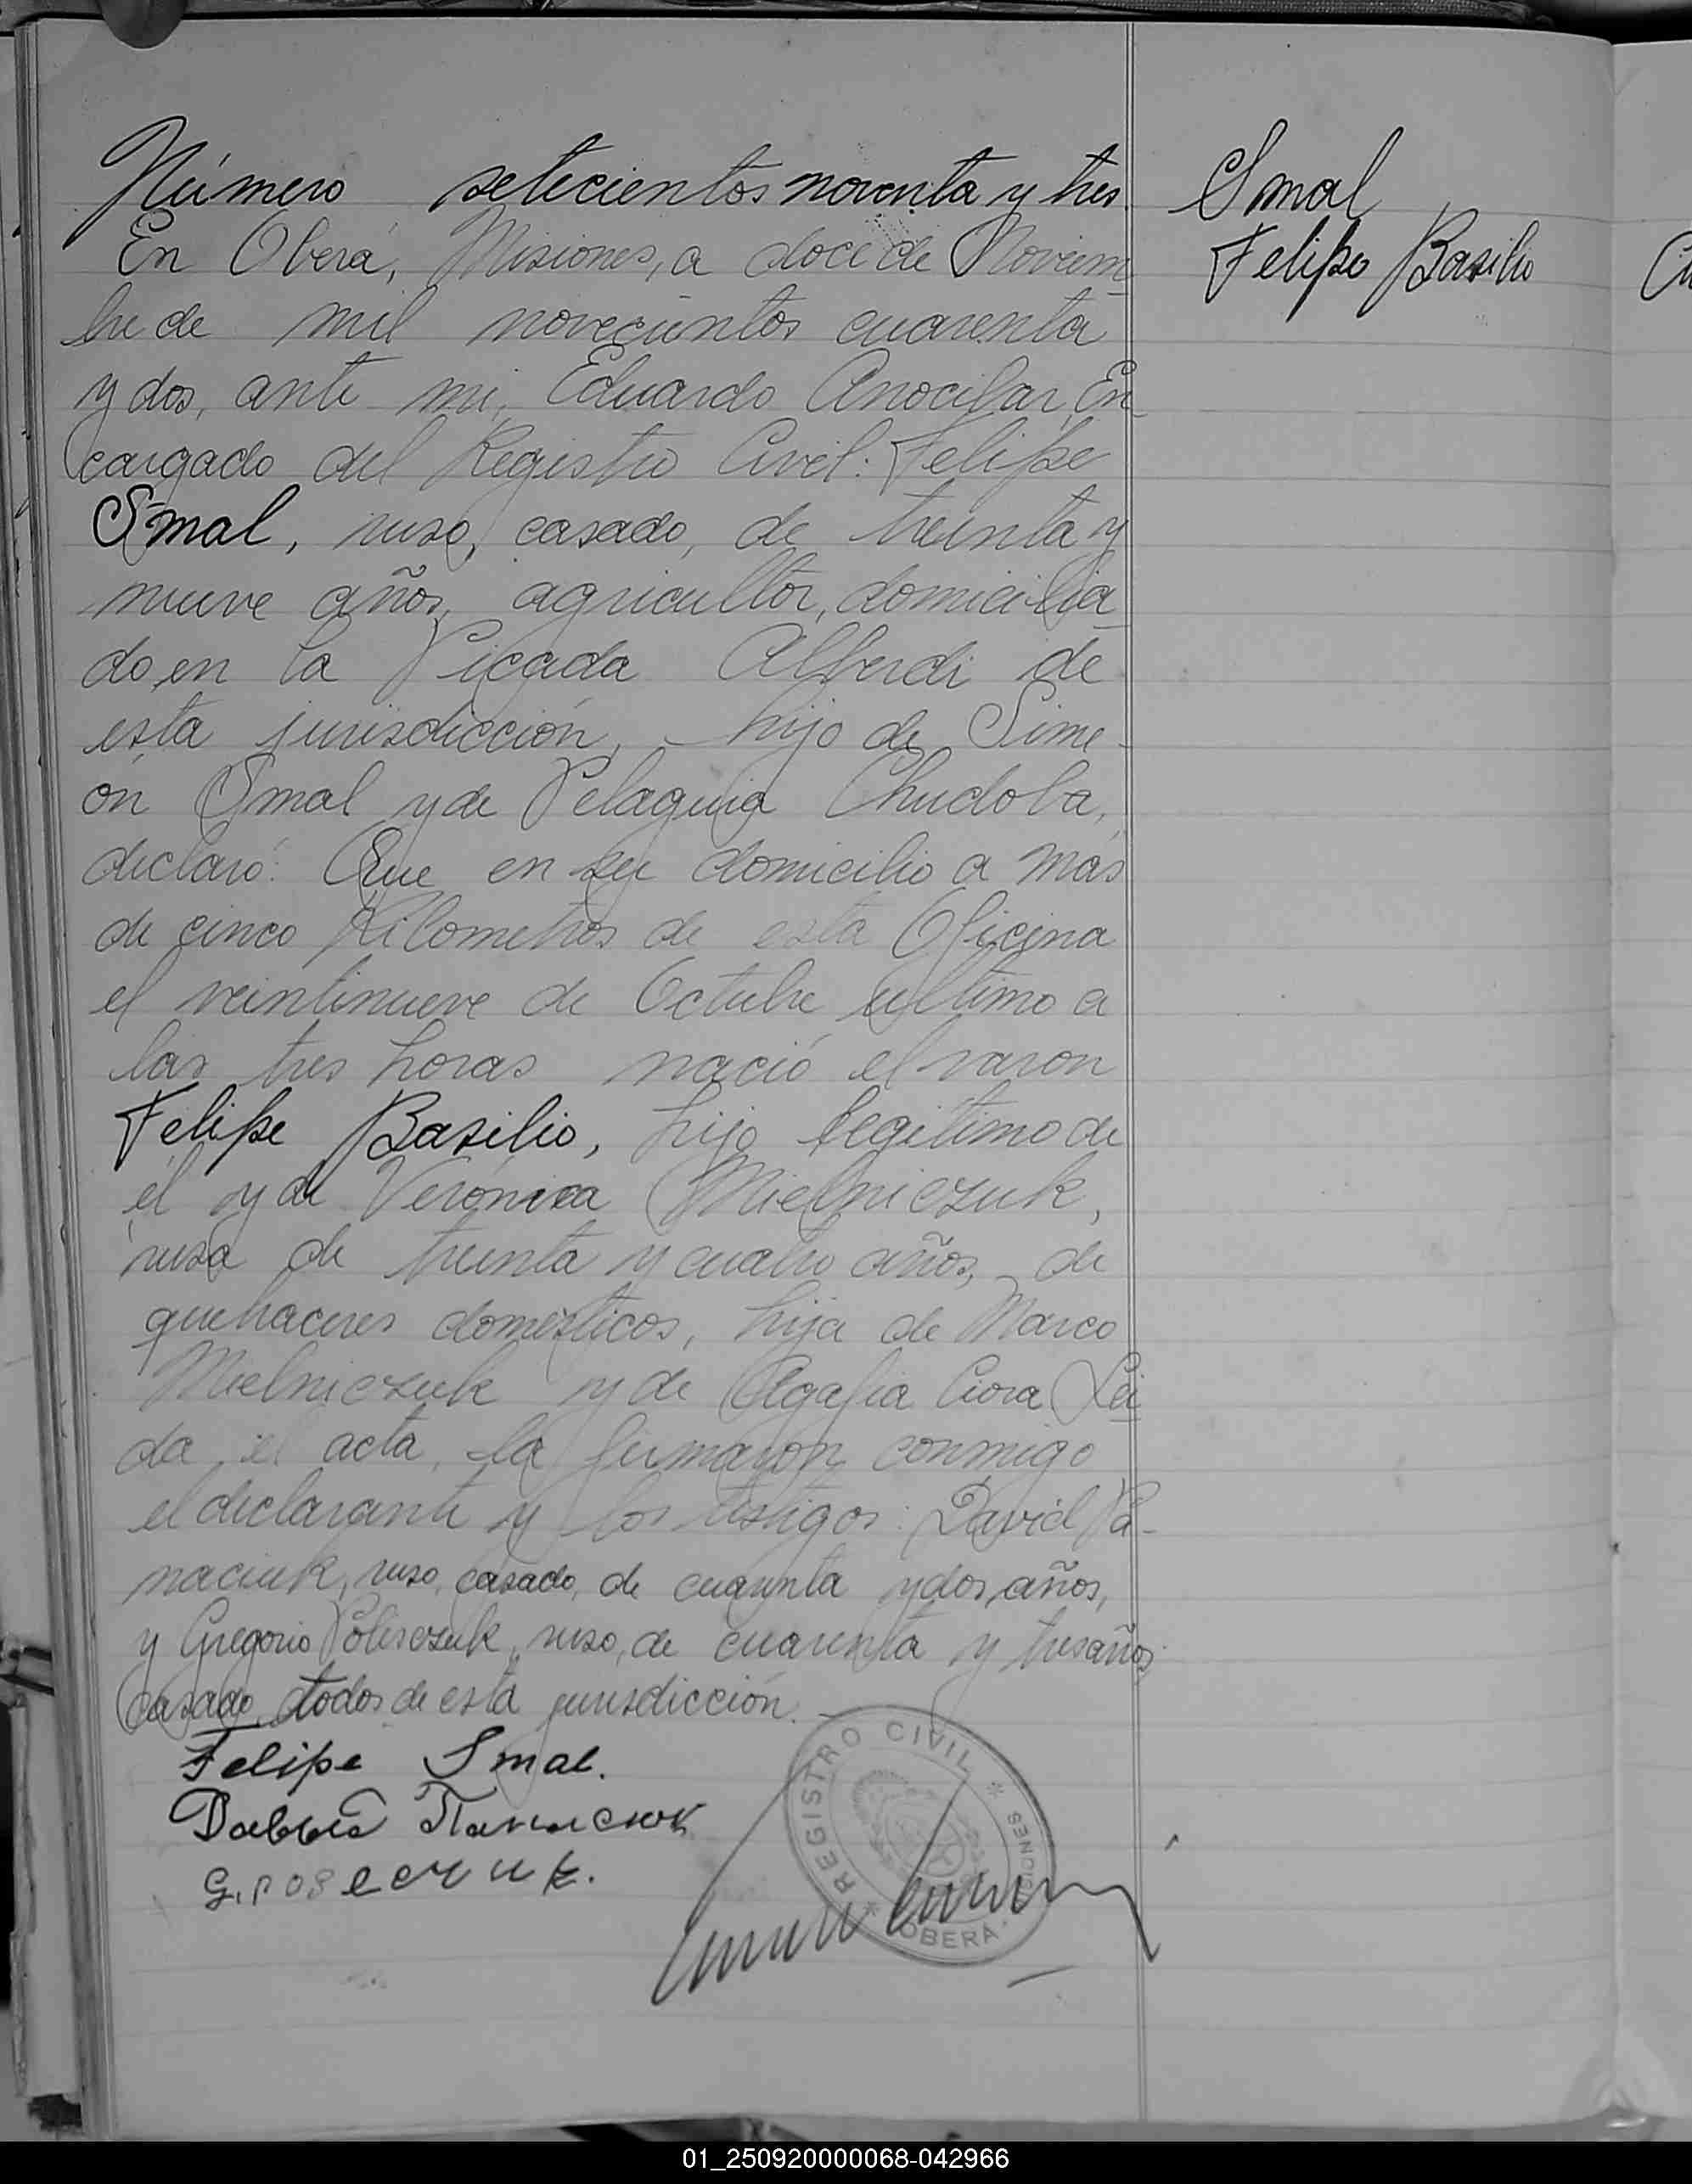 Número setecientos noventa y tres.
En Oberá, Misiones, a doce de Noviem-
bre de mil novecientos cuarenta
y dos, ante mi, Eduardo Anocibar, En
cargado del Registro Civil: Felipe
Smal, ruso, casado, de treinta y
nueve años, agricultor, domicilia
do en la Picada Alberdi de
esta jurisdicción, hijo de Sime-
ón Smal y de Pelaguia Chudoba,
declaró: Que en su domicilio a más
de cinco Kilometros de esta Oficina
el veintinueve de Octubre ultimo a
las tres horas nació el varon
Felipe Basilio, hijo legítimo de
él y de Verónica Mielniczuk,
rusa de treinta y cuatro años, de
quehaceres domésticos, hija de Marco
Mielniczuk y de Agafia Ciora Leí
da el acta, la firmaron conmigo
el declarante y los testigos: David Pa-
naciuk, ruso, casado, de cuarenta y dos, años,
y Gregorio Polisczuk, ruso, de cuarenta y tres años,
casado, todos de esta jurisdicción.
Felipe Smal.
Smal
Felipe Basilio
REGISTRO CIVIL * MISIONES
* OBERÁ
01_250920000068-042966